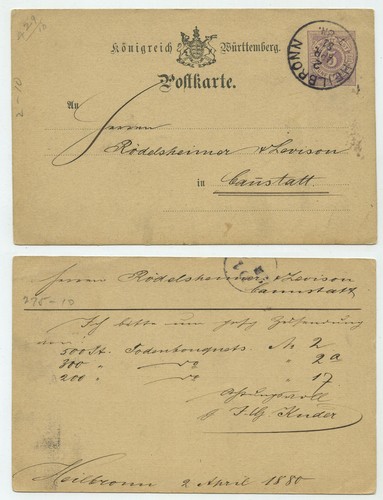 429/10
2-10
Königreich Württemberg.
Postkarte.
An
Herren
Rödelsheimer & Levison
in Cannstatt.
HEILBRONN
2 APR
Herren Rödelsheimer & Levison
Cannstatt
275-10
Ich bitte um gefl. Zusendung
von:
500 St. Todenbouquets N. 2
300 " do " 2a
200 " do " 17
Achtungsvoll
Heilbronn 2 April 1880